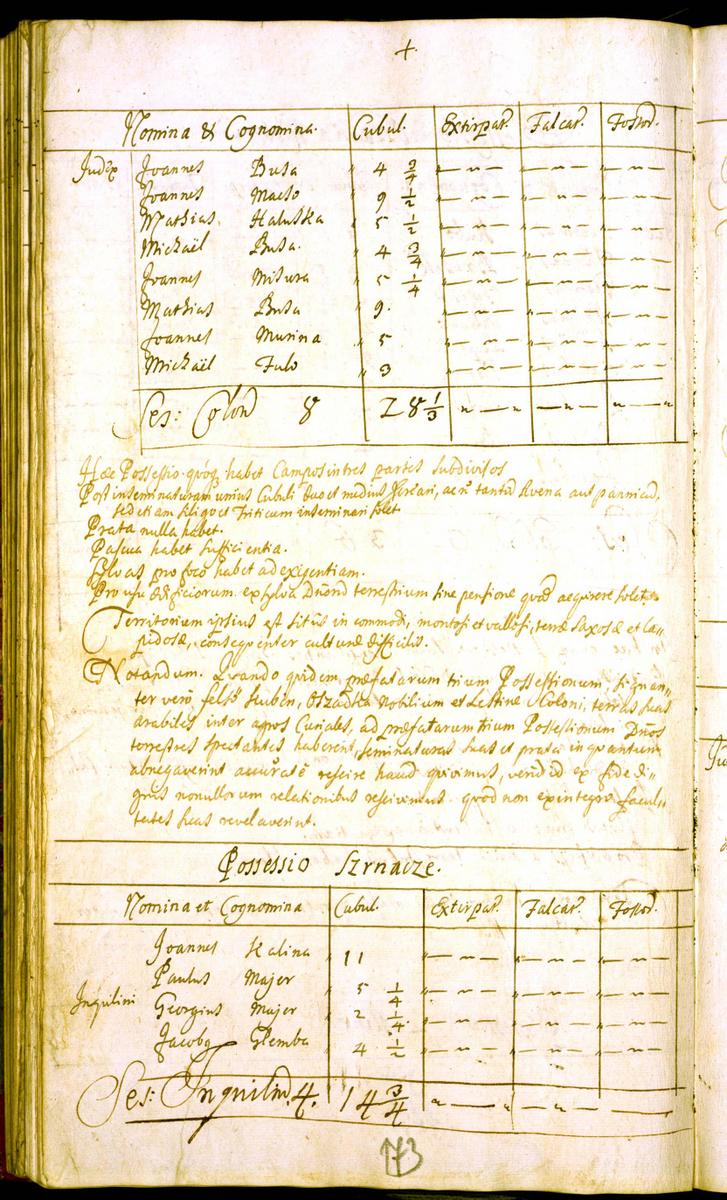 +
Nomina & Cognomina. Cubul. Extirpat. Falcat. Fossor.
Judex Joannes Busa " 4 3/4 " — " — " — " — " — " —
Joannes Macso " 9 1/2 " — " — " — " — " — " —
Mathias Haluska " 5 1/2 " — " — " — " — " — " —
Michaël Busa. " 4 3/4 " — " — " — " — " — " —
Joannes Misura " 5 1/4 " — " — " — " — " — " —
Mathias Busa " 9. " — " — " — " — " — " —
Joannes Murina " 5. " — " — " — " — " — " —
Michaël Fulo " 3 " — " — " — " — " — " —
Ses: Colon 8 28 1/3 " — " — " — " — " — "
Hæc Possessio quoq habet Campos in tres partes subdivisos
Post inseminaturam unius Cubuli duo et medius avena aut
sed etiam siligo et Triticum inseminari solet
Prata nulla habet.
Pascua habet sufficientia.
Sylvas pro foco habet ad exigentiam.
Pro usu ædificiorum ex sylva Dnord terrestrium sine pensione quod acquirere solet
Territorium ipsius est situs in commodi, montosi et vallosi, terræ saxosæ et la-
pidosæ, consequenter culturæ difficilis.
Notandum. Quando quidem præfatarum trium Possessionum, signan-
ter vero felső Kubin, Oszadka Nobilium et Lestine Coloni, terras suas
arabiles inter agros Curiales, ad præfatarum trium Possessionum Dnos
terrestres spectantes haberent, seminaturas suas et prata in quantum
abnegaverint accuratè rescire haud quivimus, verum id ex fide di-
gnis nonnullorum relationibus rescivimus quod non ex integro facul-
tates suas revelaverint.
Possessio Szrnacze.
Nomina et Cognomina Cubul. Extirpat. Falcat. Fossor.
Joannes Kalina " 11 " — " — " — " — " — " —
Paulus Majer " 5 1/4 " — " — " — " — " — " —
Inquilini Georgius Majer " 2 1/4 " — " — " — " — " — " —
Jacobq Glemba " 4 1/2 " — " — " — " — " — " —
Ses: Inquilin. 4. 14 3/4 " — " — " —
173